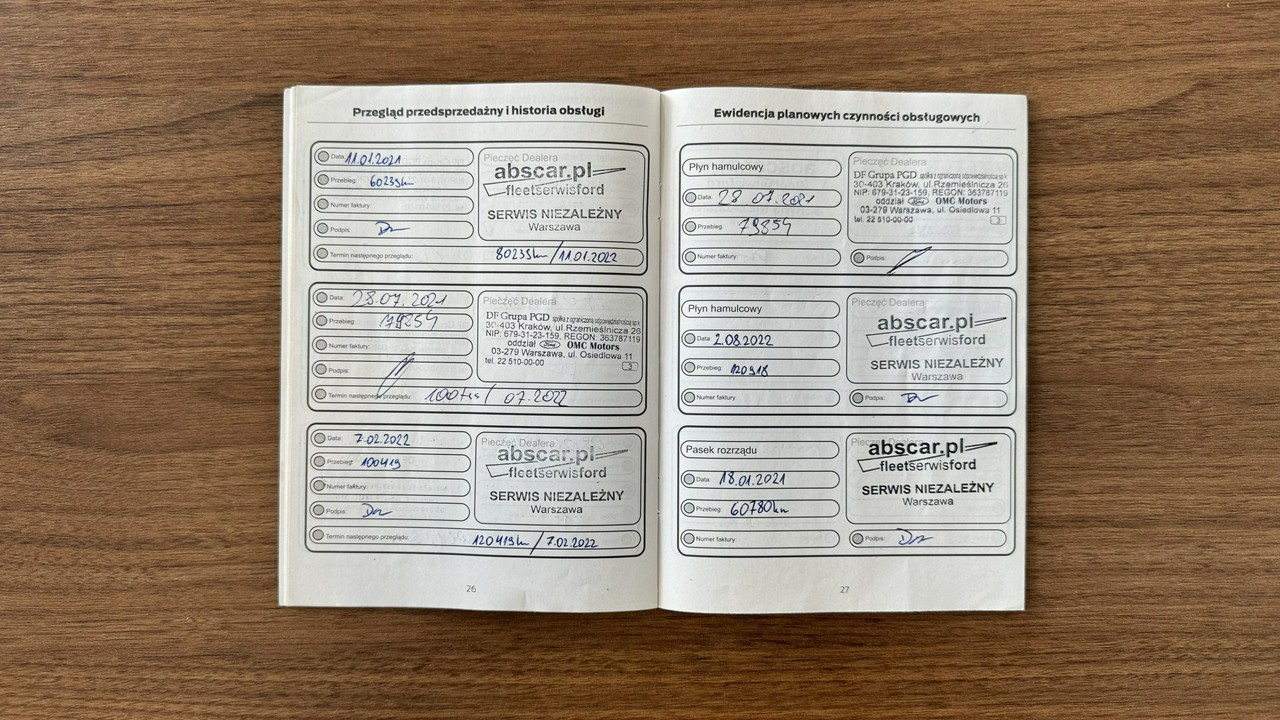 Przegląd przedsprzedażny i historia obsługi
Data: 11.01.2021
Przebieg: 60235km
Numer faktury:
Podpis:
Termin następnego przeglądu: 80235km/11.01.2022
Pieczęć Dealera
abscar.pl
fleetserwisford
SERWIS NIEZALEŻNY
Warszawa
Data: 28.07.2021
Przebieg: 79854
Numer faktury:
Podpis:
Termin następnego przeglądu: 100tys/ 07.2022
Pieczęć Dealera
DF Grupa PGD spółka z ograniczoną odpowiedzialnością sp k.
30-403 Kraków, ul. Rzemieślnicza 26
NIP: 679-31-23-159, REGON: 363787119
oddział Ford OMC Motors
03-279 Warszawa, ul. Osiedlowa 11
tel. 22 510-00-00 3
Data: 7.02.2022
Przebieg: 100419
Numer faktury:
Podpis:
Termin następnego przeglądu: 120419km/7.02.2022
Pieczęć Dealera
abscar.pl
fleetserwisford
SERWIS NIEZALEŻNY
Warszawa
26
Ewidencja planowych czynności obsługowych
Płyn hamulcowy
Data: 28 07.2021
Przebieg: 79854
Numer faktury:
Pieczęć Dealera
DF Grupa PGD spółka z ograniczoną odpowiedzialnością sp k.
30-403 Kraków, ul. Rzemieślnicza 26
NIP: 679-31-23-159, REGON: 363787119
oddział Ford OMC Motors
03-279 Warszawa, ul. Osiedlowa 11
tel. 22 510-00-00 3
Podpis:
Płyn hamulcowy
Data: 2.08.2022
Przebieg: 120918
Numer faktury:
Pieczęć Dealera
abscar.pl
fleetserwisford
SERWIS NIEZALEŻNY
Warszawa
Podpis:
Pasek rozrządu
Data: 18.01.2021
Przebieg: 60780km
Numer faktury:
Pieczęć Dealera
abscar.pl
fleetserwisford
SERWIS NIEZALEŻNY
Warszawa
Podpis:
27